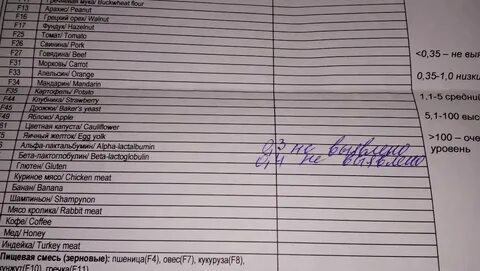 Гречневая мука/ Buckwheat flour
F13 Арахис/ Peanut
F16 Грецкий орех/ Walnut
F17 Фундук/ Hazelnut
F25 Томат/ Tomato
F26 Свинина/ Pork
F27 Говядина/ Beef
<0,35 – не выя
F31 Морковь/ Carrot
F33 Апельсин/ Orange
0,35-1,0 низки
F34 Мандарин/ Mandarin
F35 Картофель/ Potato
1,1-5 средний
F44 Клубника/ Strawberry
F45 Дрожжи/ Baker's yeast
F49 Яблоко/ Apple
5,1-100 выс
Цветная капуста/ Cauliflower
Яичный желток/ Egg yolk
>100 – оче
уровень
Альфа-лактальбумин/ Alpha-lactalbumin 0,3 не выявлено
Бета-лактоглобулин/ Beta-lactoglobulin 0,4 не выявлено
Глютен/ Gluten
Куриное мясо/ Chicken meat
Банан/ Banana
Шампиньон/ Shampynon
Мясо кролика/ Rabbit meat
Кофе/ Coffee
Мед/ Honey
Индейка/ Turkey meat
Пищевая смесь (зерновые): пшеница(F4), овес(F7), кукуруза(F8),
кунжут(F10), гречка(F11)